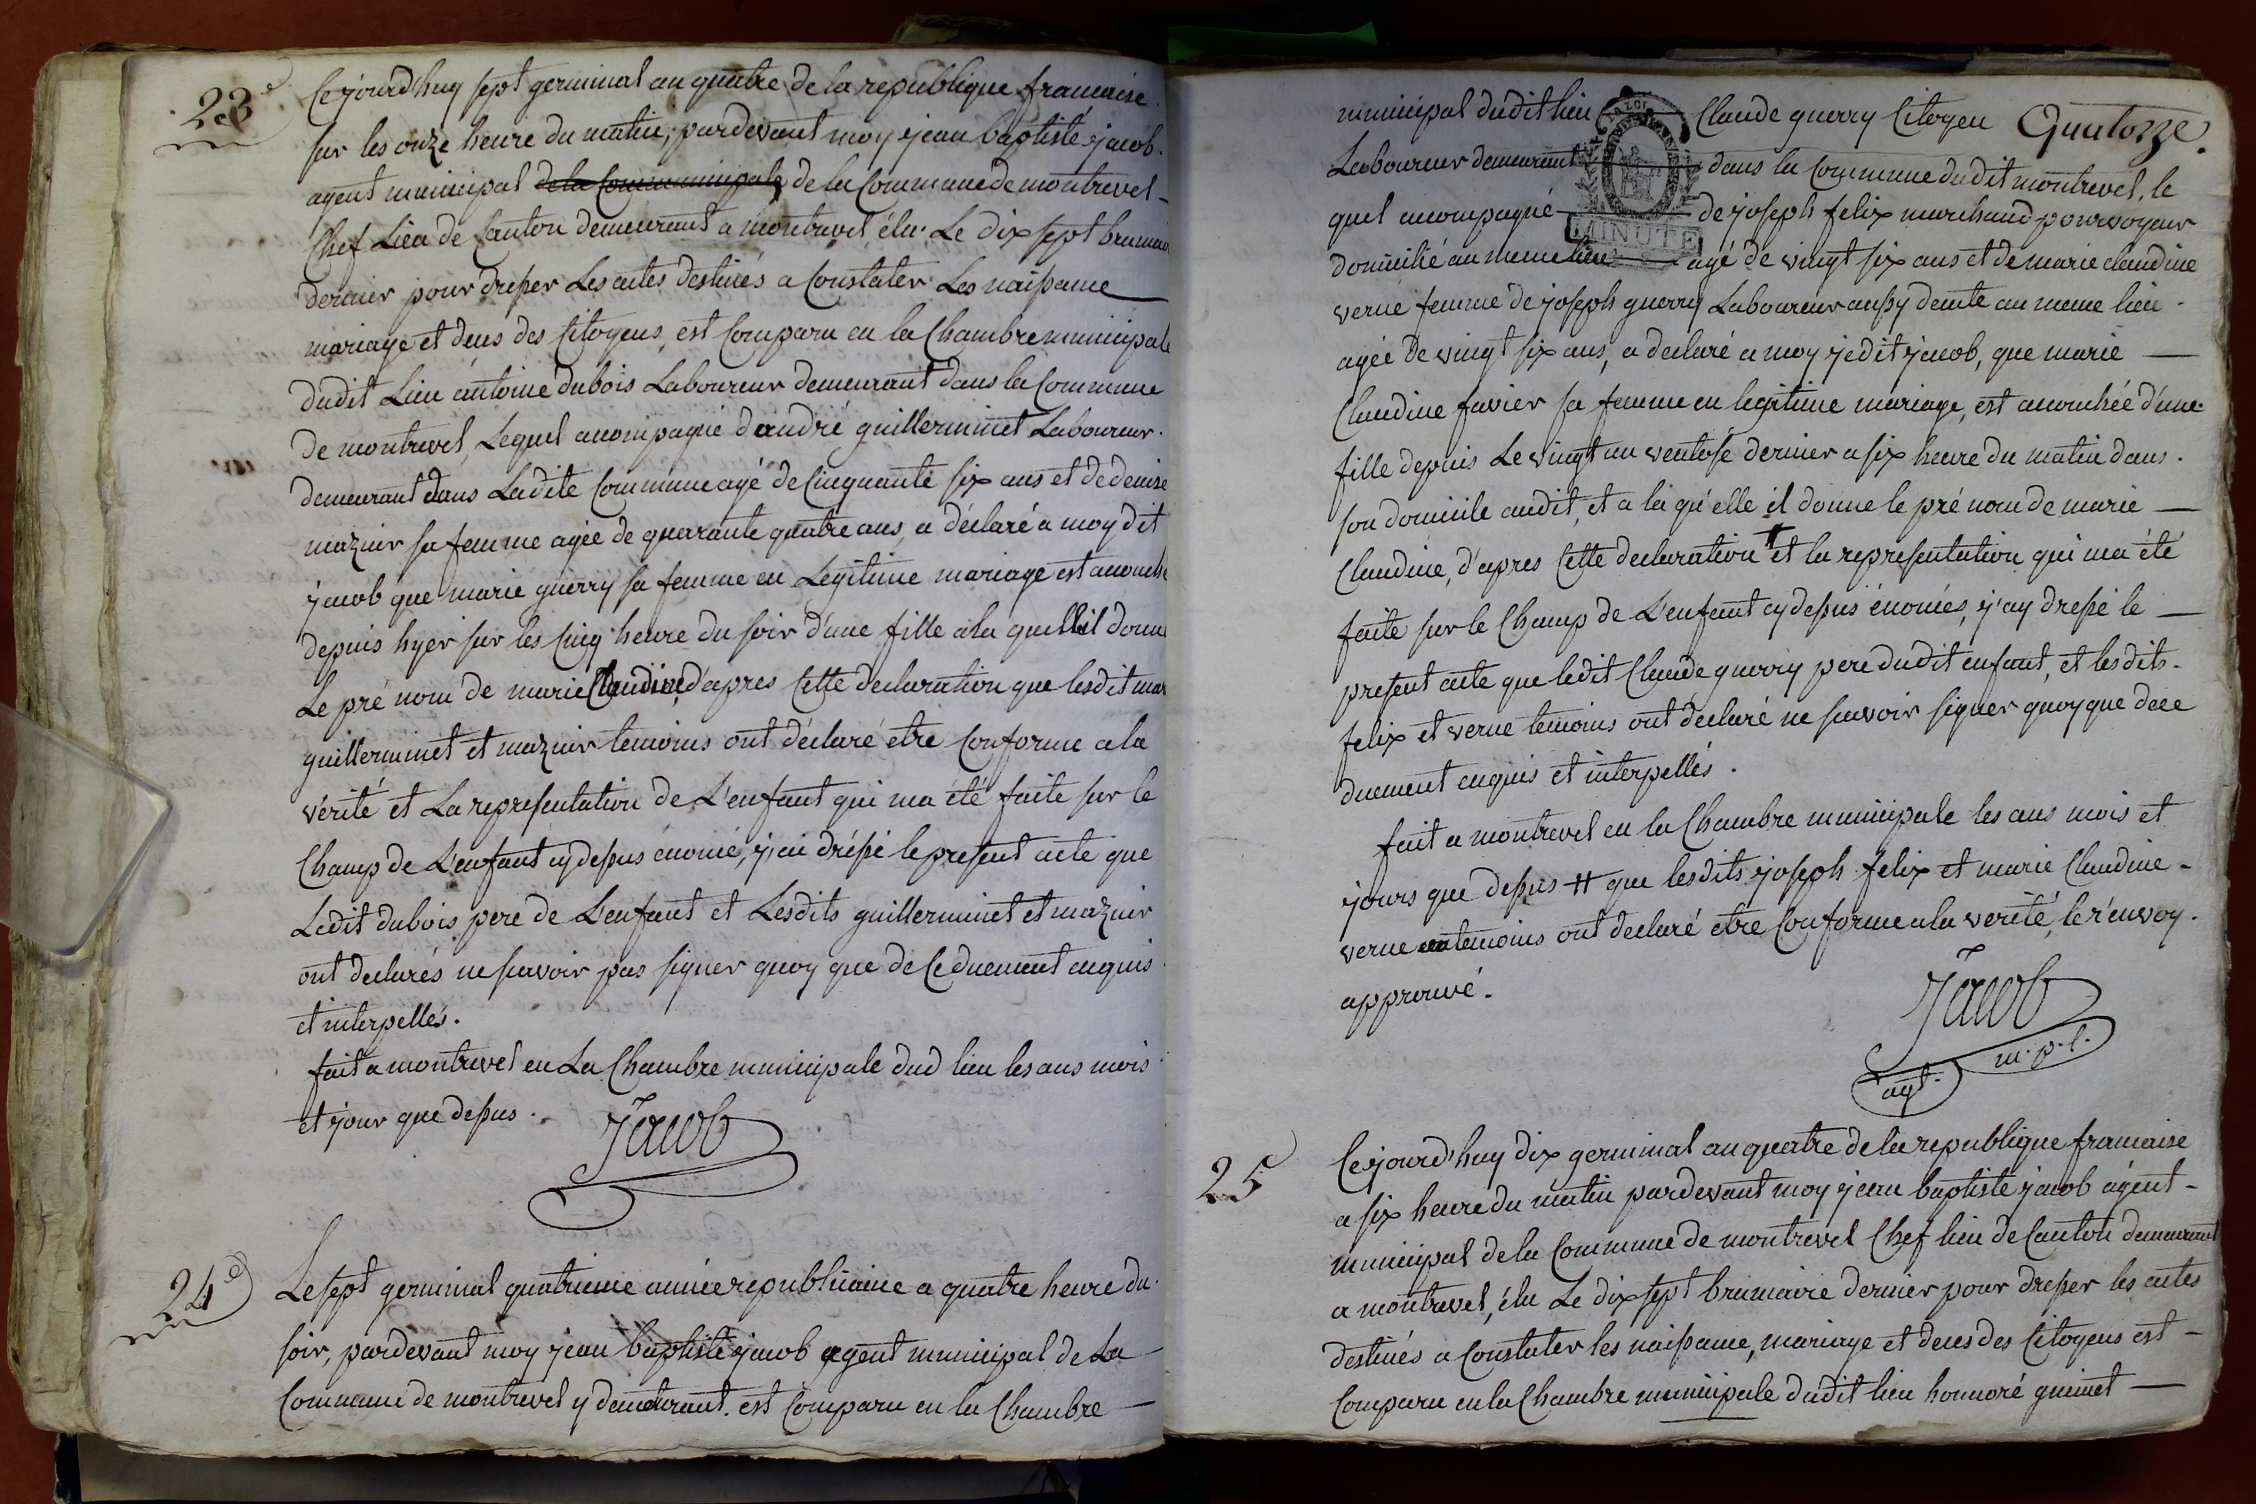 23e
Cejourd'huy sept germinal an quatre de la republique francaise
sur les onze heure du matin, pardevant moy jean baptiste jacob
agent municipal de la Commune de montrevel
Chef Lieu de Canton demeurant a montrevel élu Le dix sept brumai
dernier pour dresser Les actes destinés a Constater Les naissance
mariage et deces des Citoyens, est Comparu en la Chambre municipale
dudit Lieu antoine dubois Laboureur demeurant dans la Commune
de montrevel, Lequel acompagné d'andré guillerminet Laboureur
demeurant dans Ladite Commune agé de Cinquante six ans et de denise
maznir sa femme agée de quarante quatre ans, a déclaré a moy dit
jacob que marie guerry sa femme en Legitime mariage est acouchée
depuis hyer sur les Cinq heure du soir d'une fille a la quelle il donne
Le pré nom de marie Claudine, d'apres Cette declaration que lesdit
guillerminet et maznir temoins ont déclaré etre Conforme a la
verité et La representation de L'enfant qui ma été faite sur le
Champ de L'enfant cy dessus énomé, j'ai dréssé le present acte que
Ledit dubois pere de L'enfant et Lesdits guillerminet et maznir
ont declarés ne savoir pas signer quoy que de Ce duement enquis
et interpellés.
fait a montrevel en La Chambre municipale dud lieu les ans mois
et jour que dessus.
Jacob
24e
Le sept germinal quatrieme année republicaine a quatre heure du
soir, pardevant moy jean baptiste jacob agent municipal de La
Commune de montrevel y demeurant. est Comparu en la Chambre
Quatorze.
municipal dudit lieu Claude guerry Citoyen
Laboureur demeurant dans la Commune dudit montrevel, le
quel acompagné de joseph felix marchand pourvoyeur
MINUTE
domicilié au meme lieu agé de vingt six ans et de marie claudine
verne femme de joseph guerry Laboureur aussy demte au meme lieu
agée de vingt six ans, a declaré a moy jedit jacob, que marie
Claudine favier sa femme en legitime mariage, est acouchée d'une
fille depuis Le vingt un ventose dernier a six heure du matin dans
son domicile audit, et a la qu'elle il donne le pré nom de marie
Claudine, d'apres Cette declaration # et la representation qui ma été
faite sur le Champ de L'enfant cy dessus énomées, j'ay dressé le
present acte que ledit Claude guerry pere dudit enfant, et lesdits
felix et verne temoins ont déclaré ne savoir signer quoyque de ce
duement enquis et interpellés.
fait a montrevel en la Chambre municipale les ans mois et
jours que dessus # que lesdits joseph felix et marie Claudine
verne temoins ont declaré etre Conforme a la verité, le r'envoy
approuvé.
Jacob
agt. m.p.l.
25
Cejourd'huy dix germinal an quatre de la republique francaise
a six heure du matin pardevant moy jean baptiste jacob ágent
municipal de la Commune de montrevel Chef lieu de Canton demeurant
a montrevel, élu Le dix sept brumaire dernier pour dresser les actes
destinés a Constater les naissance, mariage et deces des Citoyens est
Comparu en la Chambre municipale dudit lieu honnoré guinet